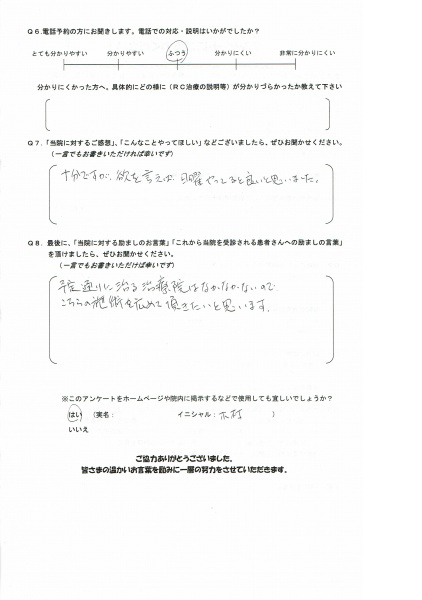 Q6.電話予約の方にお聞きします。電話での対応・説明はいかがでしたか?
とても分かりやすい 分かりやすい ふつう 分かりにくい 非常に分かりにくい
分かりにくかった方へ。具体的にどの様に(RC治療の説明等)が分かりづらかったか教えて下さい
Q7.「当院に対するご感想」、「こんなことやってほしい」などございましたら、ぜひお聞かせください。
(一言でもお書きいただければ幸いです)
十分ですが、欲を言えば 日曜やってると良いと思いました。
Q8. 最後に、「当院に対する励ましのお言葉」「これから当院を受診される患者さんへの励ましの言葉」
を頂けましたら、ぜひお聞かせください。
(一言でもお書きいただければ幸いです)
予定通りに治る治療院はなかなかないので
こちらの施術を広めて頂きたいと思います。
※このアンケートをホームページや院内に掲示するなどで使用しても宜しいでしょうか?
はい (実名: イニシャル: 木村 )
いいえ
ご協力ありがとうございました。
皆さまの温かいお言葉を励みに一層の努力をさせていただきます。